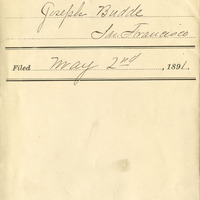 Joseph Budde
San Francisco
Filed May 2nd, 1891.